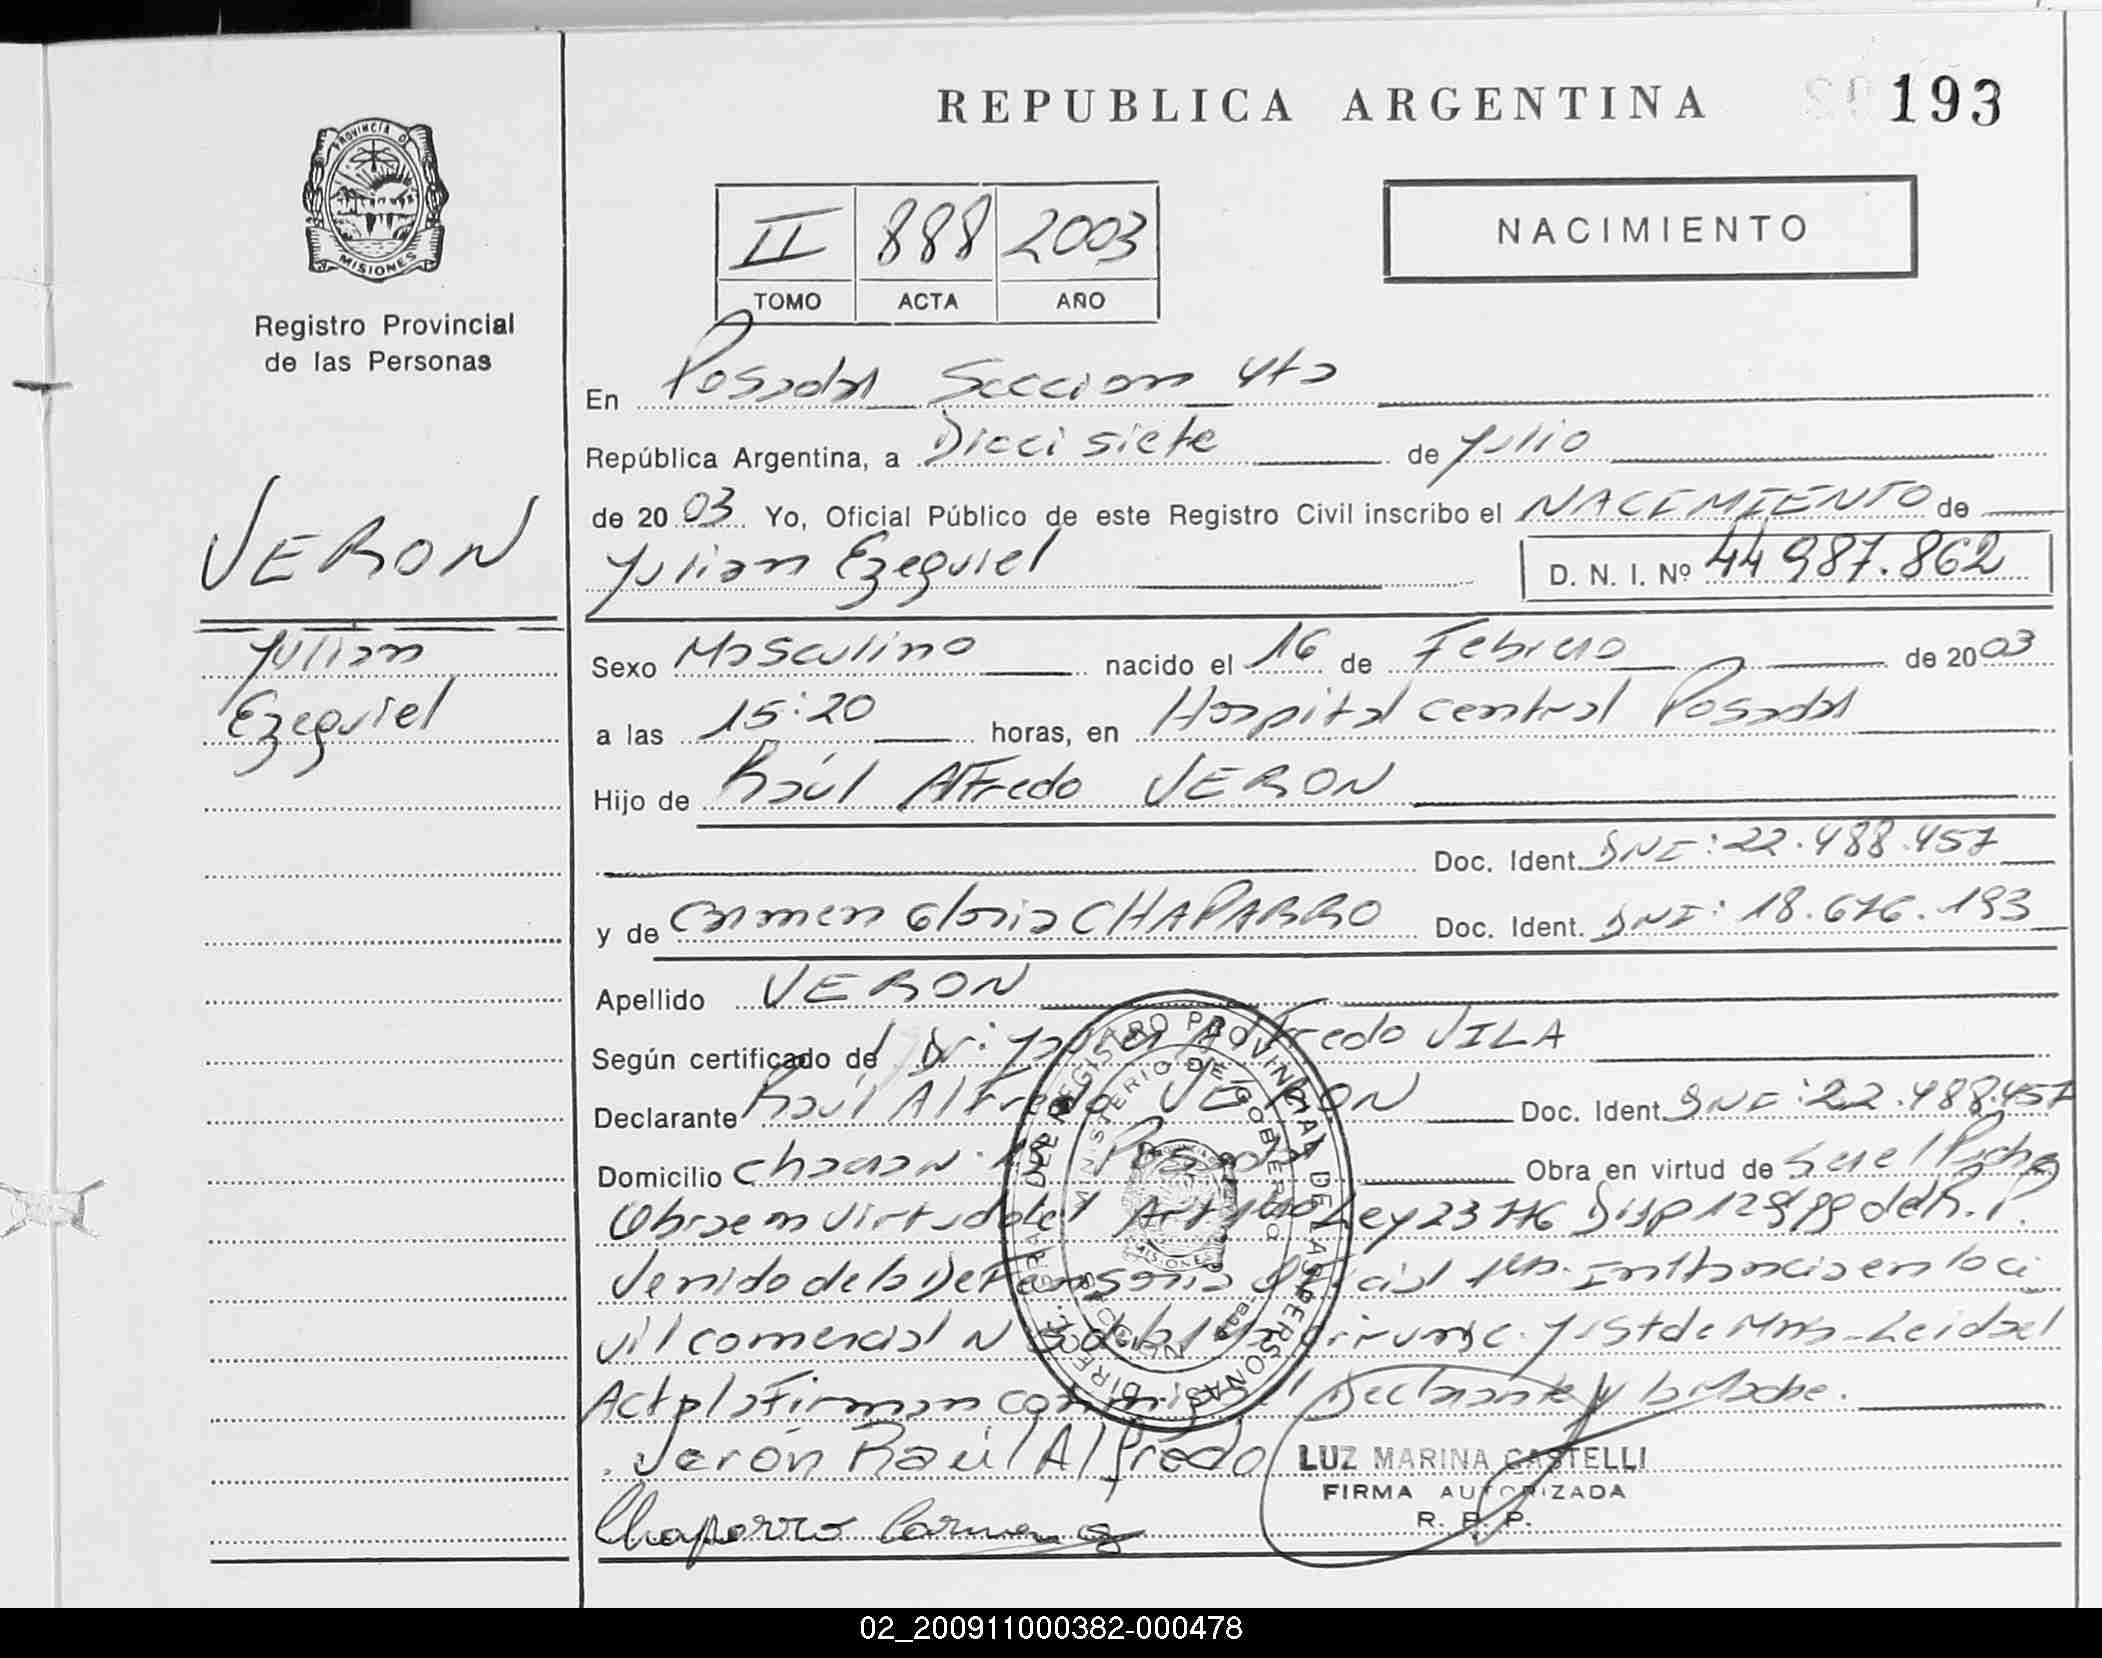 REPUBLICA ARGENTINA 193
PROVINCIA DE
MISIONES
Registro Provincial
de las Personas
II 888 2003
TOMO ACTA AÑO
NACIMIENTO
En Posadas Seccion 4ta
República Argentina, a Dieci siete de Julio
de 2003 Yo, Oficial Público de este Registro Civil inscribo el NACIMIENTO de
Julian Ezequiel D. N. I. Nº 44 987.862
VERON
Julian
Ezequiel
Sexo Masculino nacido el 16 de Febrero de 2003
a las 15:20 horas, en Hospital central Posadas
Hijo de Raúl Alfredo VERON
Doc. Ident. DNI: 22.488.457
y de Carmen Gloria CHAPARRO Doc. Ident. DNI: 18.676.193
Apellido VERON
Según certificado de Dr: Javier Alfredo VILA
Declarante Raúl Alfredo VERON Doc. Ident. DNI: 22.488.457
Domicilio Posadas Obra en virtud de
Obra en virtud del Art Ley 23776 Disp 129/99 del R.P.
Venido de la Defensoria Oficial Instancia en lo ci
vil comercial N de la Circunsc. Just de Mns. Leida el
Acta la Firman conmigo el Declarante y la Madre.
Verón Raúl Alfredo
LUZ MARINA CASTELLI
FIRMA AUTORIZADA
R. P. P.
Chaparro Carmen G
MINISTERIO DE GOBIERNO
02_200911000382-000478